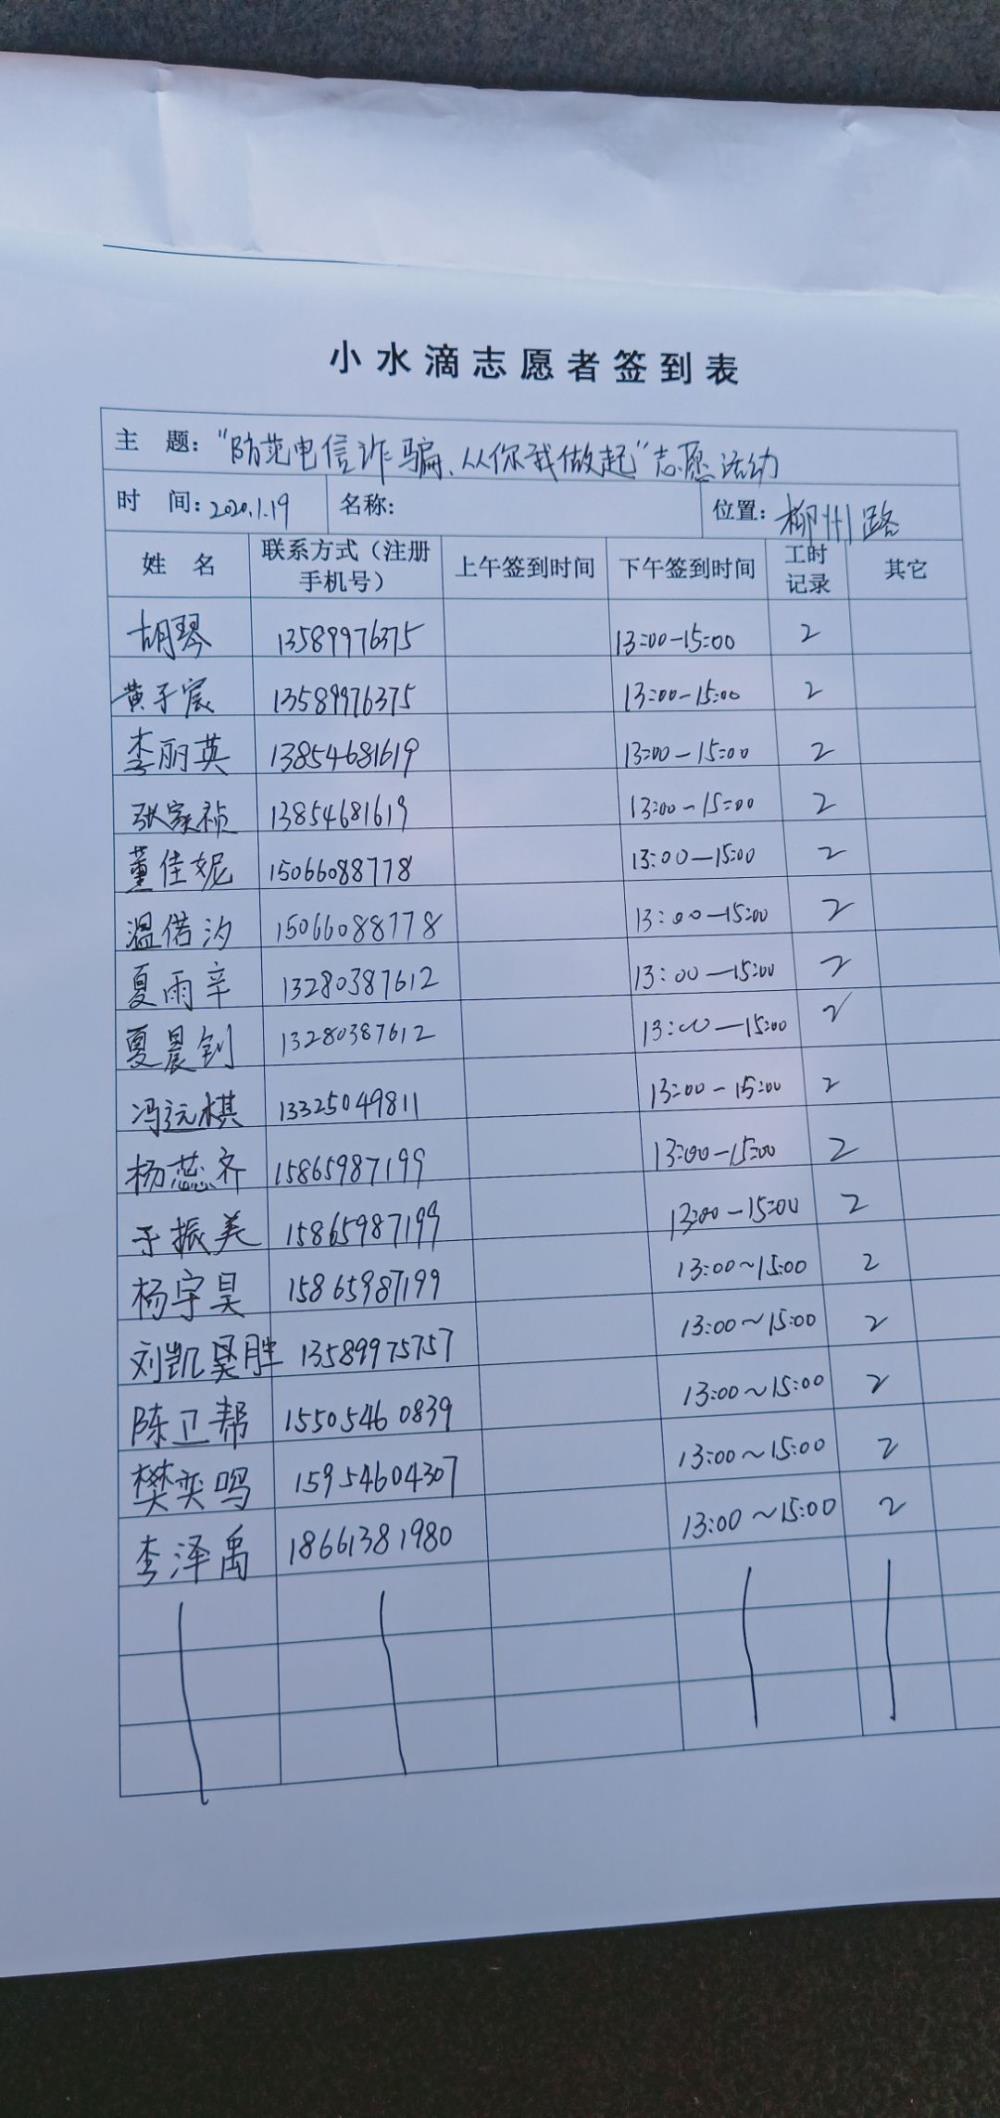 小水滴志愿者签到表
主 题：“防范电信诈骗、从你我做起”志愿活动
时 间：2020.1.19 名称： 位置：柳州路
姓 名 联系方式（注册手机号） 上午签到时间 下午签到时间 工时记录 其它
胡琴 13589976375 13:00-15:00 2
黄子宸 13589976375 13:00-15:00 2
李丽英 13854681619 13:00-15:00 2
张家祯 13854681619 13:00-15:00 2
董佳妮 15066088778 13:00-15:00 2
温偌汐 15066088778 13:00-15:00 2
夏雨辛 13280387612 13:00-15:00 2
夏晨钊 13280387612 13:00-15:00 2
冯远棋 13325049811 13:00-15:00 2
杨蕊齐 15865987199 13:00-15:00 2
于振美 15865987199 13:00-15:00 2
杨宇昊 15865987199 13:00~15:00 2
刘凯昊胜 13589975757 13:00~15:00 2
陈卫帮 15505460839 13:00~15:00 2
樊奕鸣 15954604307 13:00~15:00 2
李泽禹 18661381980 13:00~15:00 2